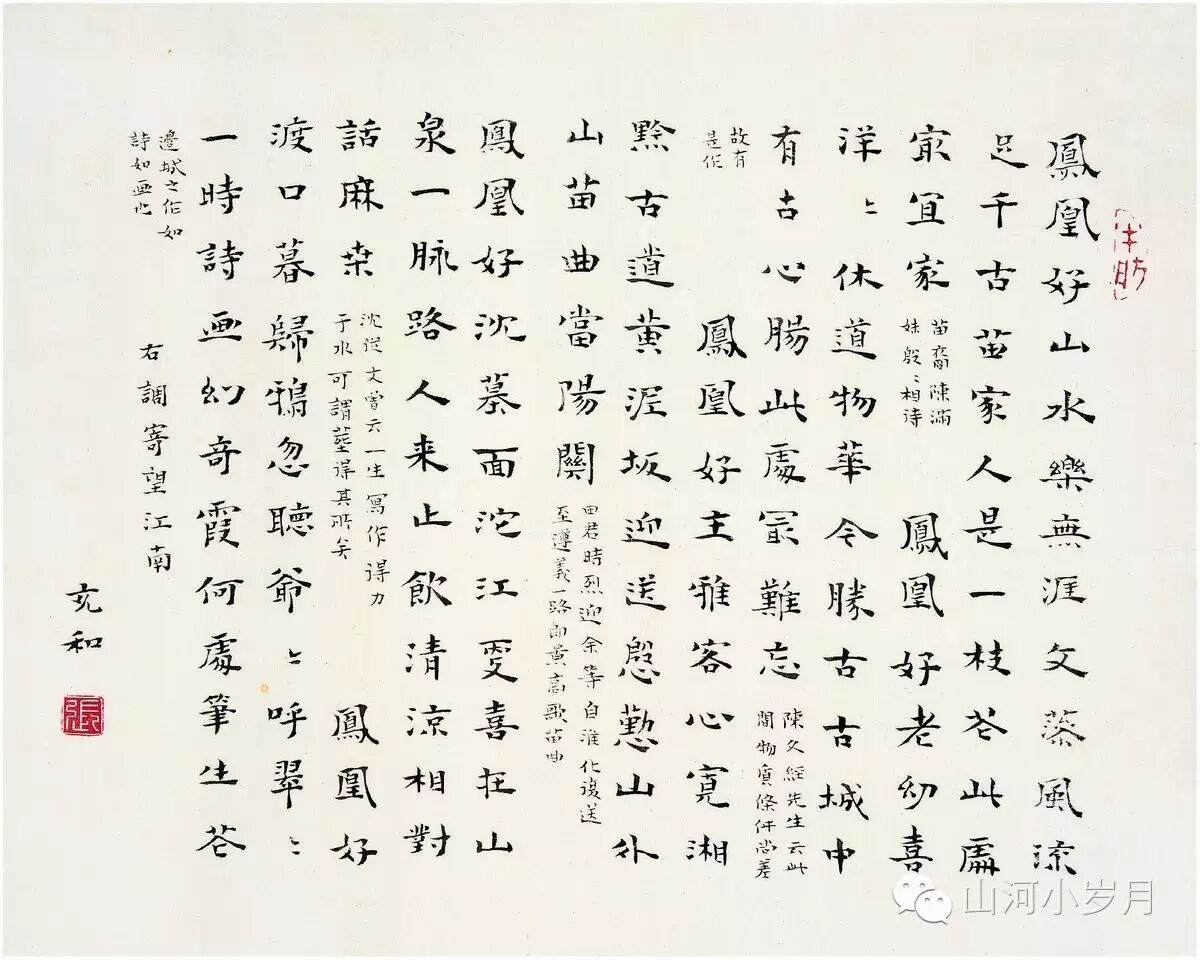 鳳凰好山水樂無涯文藻風流
足千古苗家人是一枝花此處
㝡宜家
苗裔陳滿
妹殷〻相待
鳳凰好老幼喜
洋〻休道物華今勝古古城中
有古心腸此處㝡難忘
陳久經先生云此
間物質條件尚差
故有
是作
鳳凰好主雅客心寬湘
黔古道黃泥坂迎送慇懃山外
山苗曲當陽關
田君時烈迎余等自淮化後送
至遵義一路面黃高歌苗曲
鳳凰好沈墓面沱江更喜在山
泉一脉路人来止飲清涼相對
話麻桒
沈從文曾云一生寫作得力
于水可謂塟得其所矣
鳳凰好
渡口暮歸鴉忽聽爺〻呼翠〻
一時詩画幻奇霞何處筆生花
邊城之作如
詩如画也
右調寄望江南
充和
張
山河小岁月